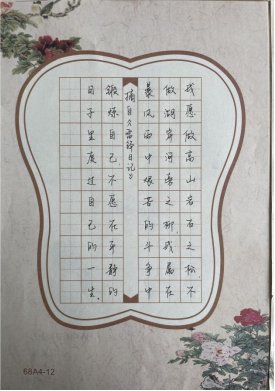 我愿做高山岩石之松,不
做湖岸河旁之柳,我愿在
暴风雨中艰苦的斗争中
摘自《雷锋日记》
锻炼自己,不愿在平静的
日子里度过自己的一生.
68A4-12